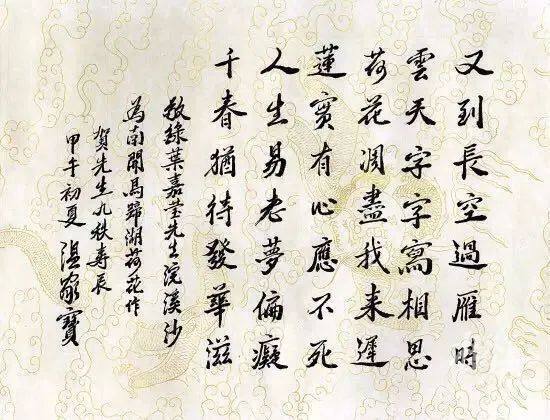 又到長空過雁時
雲天字字寫相思
荷花凋盡我来遲
蓮實有心應不死
人生易老夢偏癡
千春猶待發華滋
敬錄葉嘉瑩先生浣溪沙
為南開馬蹄湖荷花作
賀先生九秩寿辰
甲午初夏 温家寶